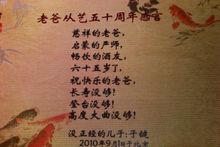 老爸从艺五十周年感言
慈祥的老爸，
启蒙的严师，
畅饮的酒友，
六十五岁了，
祝快乐的老爸，
长寿没够！
登台没够！
高度大曲没够！
没正经的儿子：子健
2010年9月1日于北京